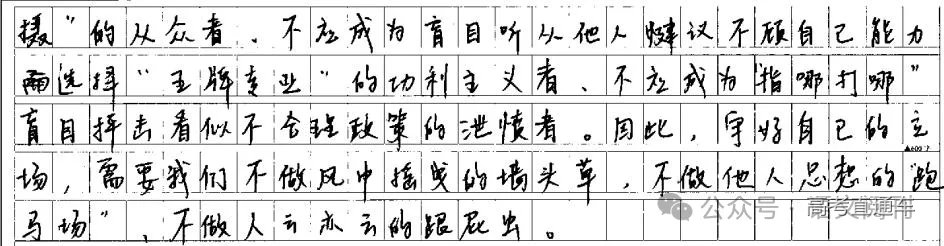 摄"的从众者、不应成为盲目听从他人建议不顾自己能力
而选择"王牌专业"的功利主义者、不应成为"指哪打哪"
盲目抨击看似不合理政策的泄愤者。因此,守好自己的立
▲600字
场,需要我们不做风中摇曳的墙头草,不做他人思想的"跑
马场"、不做人云亦云的跟屁虫。
公众号·高考直通车